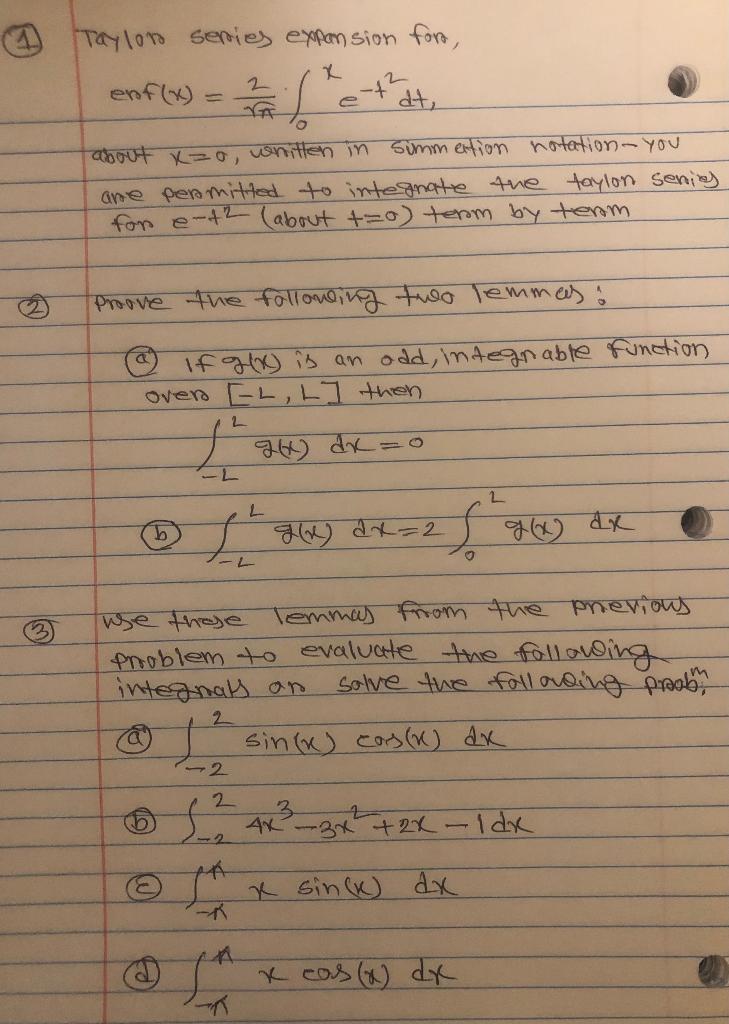 ① Taylor series expansion for,
erf(x) = 2/√π · ∫₀ˣ e^-t² dt,
about x=0, written in summation notation - you
are permitted to integrate the taylor series
for e^-t² (about t=0) term by term
② prove the following two lemmas :
ⓐ if g(x) is an odd, integrable function
over [-L, L] then
∫_-L^L g(x) dx = 0
ⓑ ∫_-L^L g(x) dx = 2 ∫₀^L g(x) dx
③ use these lemmas from the previous
problem to evaluate the following
integrals or solve the following probm;
ⓐ ∫_-2^2 sin(x) cos(x) dx
ⓑ ∫_-2^2 4x³ - 3x² + 2x - 1 dx
ⓒ ∫_-π^π x sin(x) dx
ⓓ ∫_-π^π x cos(x) dx